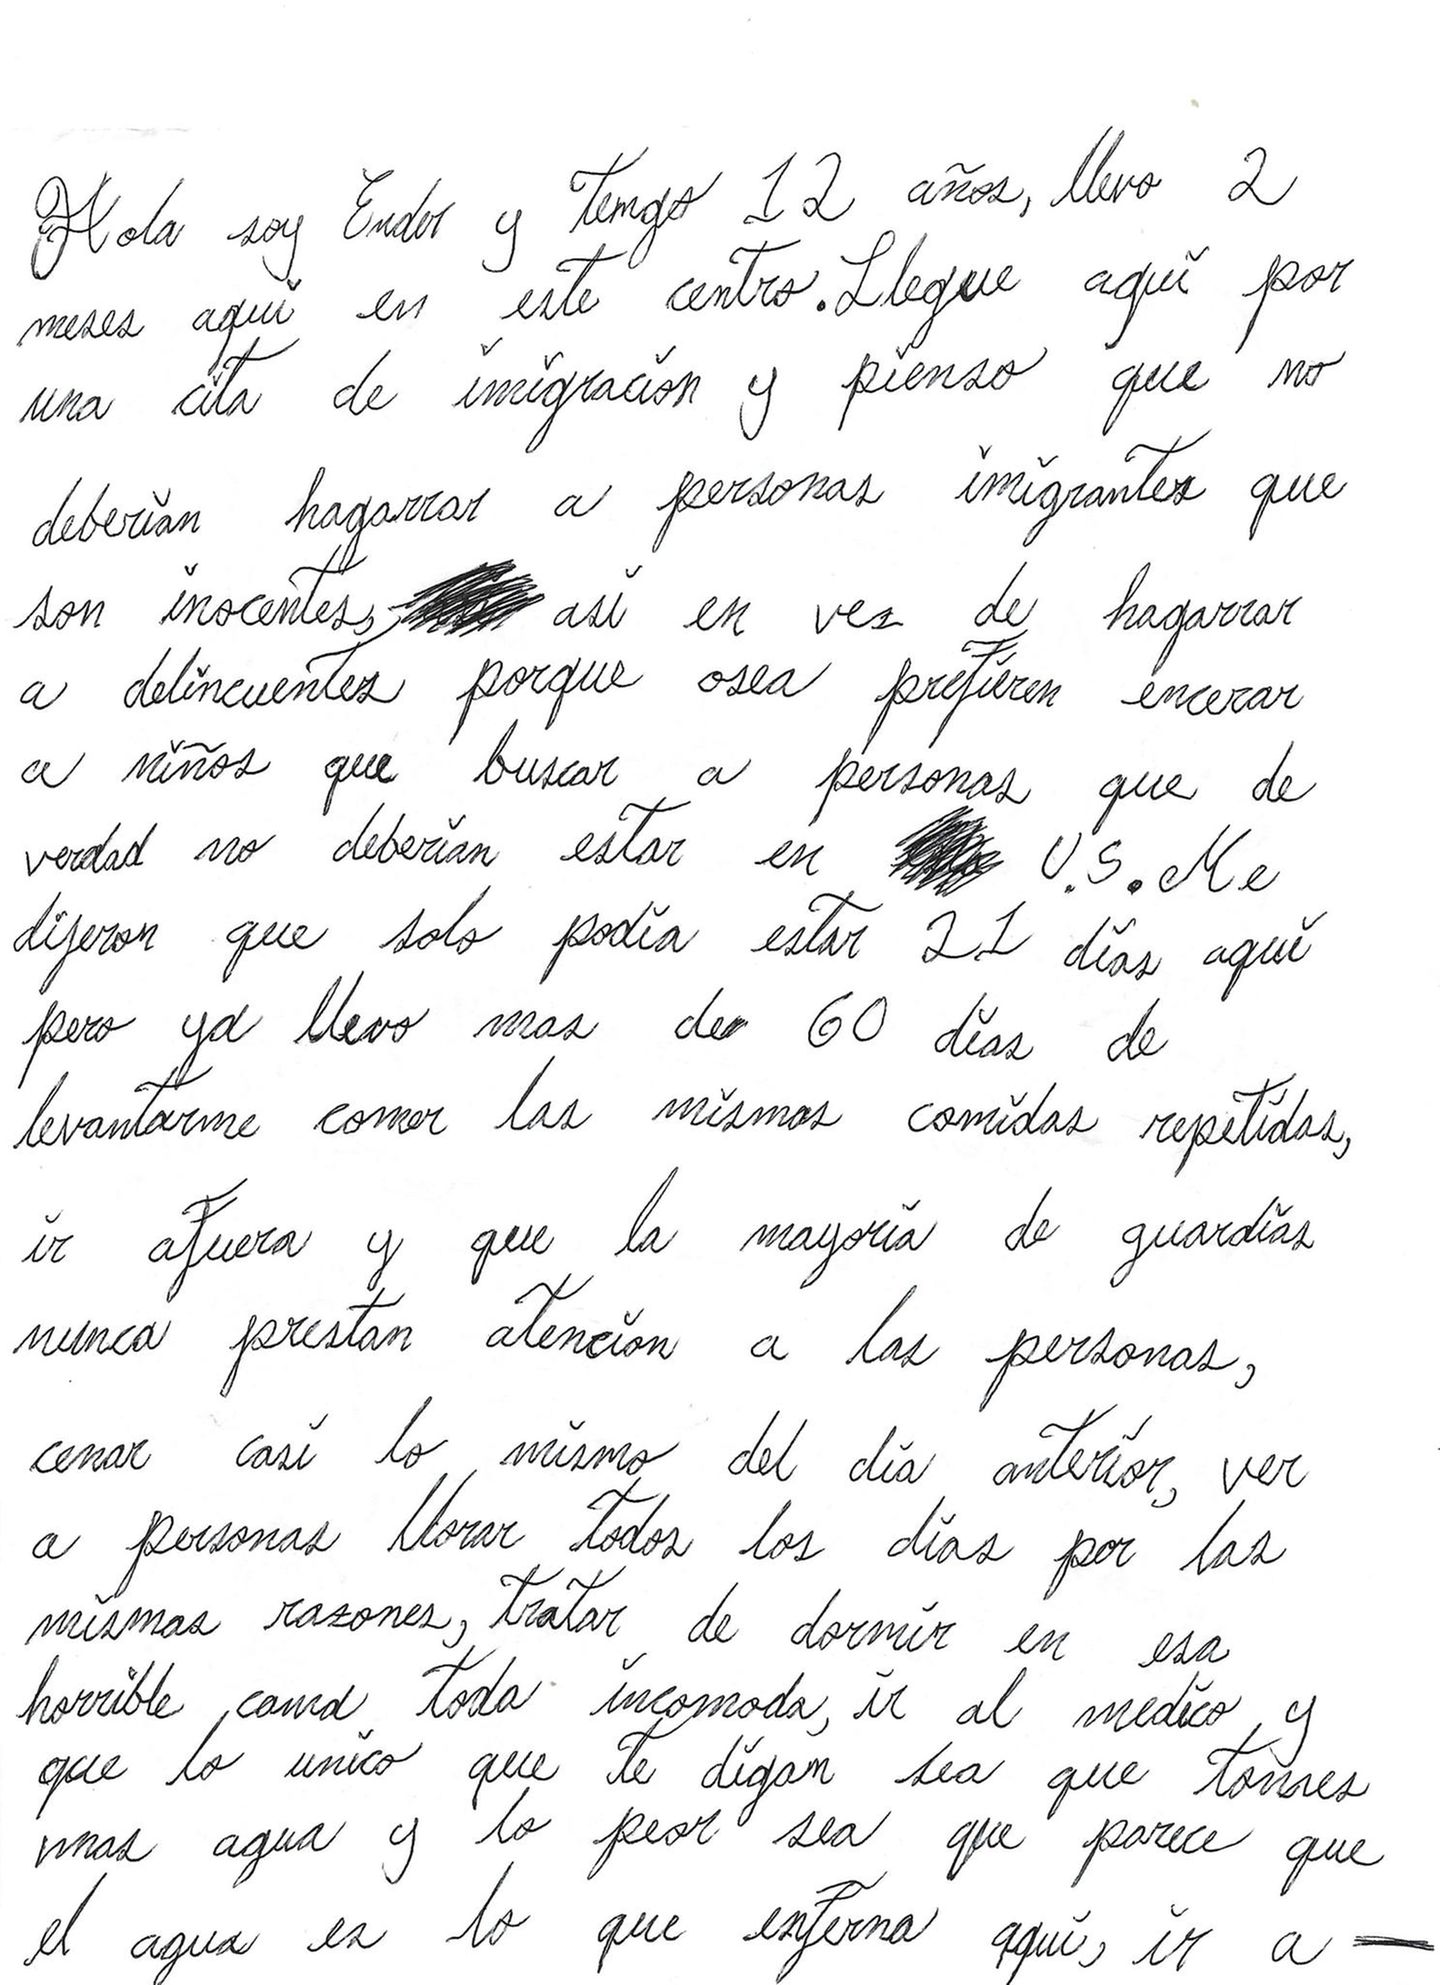 Hola soy Ender y Tengo 12 años, llevo 2
meses aqui en este centro. Llegue aqui por
una cita de imigracion y pienso que no
deberian hagarrar a personas imigrantes que
son inocentes, asi en vez de hagarrar
a delincuentes porque osea prefieren encerar
a niños que buscar a personas que de
verdad no deberian estar en U.S. Me
dijeron que solo podia estar 21 dias aqui
pero ya llevo mas de 60 dias de
levantarme comer las mismas comidas repetidas,
ir afuera y que la mayoria de guardias
nunca prestan atencion a las personas,
cenar casi lo mismo del dia anterior, ver
a personas llorar todos los dias por las
mismas razones, tratar de dormir en esa
horrible cama toda incomoda, ir al medico y
que lo unico que te digan sea que tomes
mas agua y lo peor sea que parece que
el agua es lo que enferma aqui, ir a